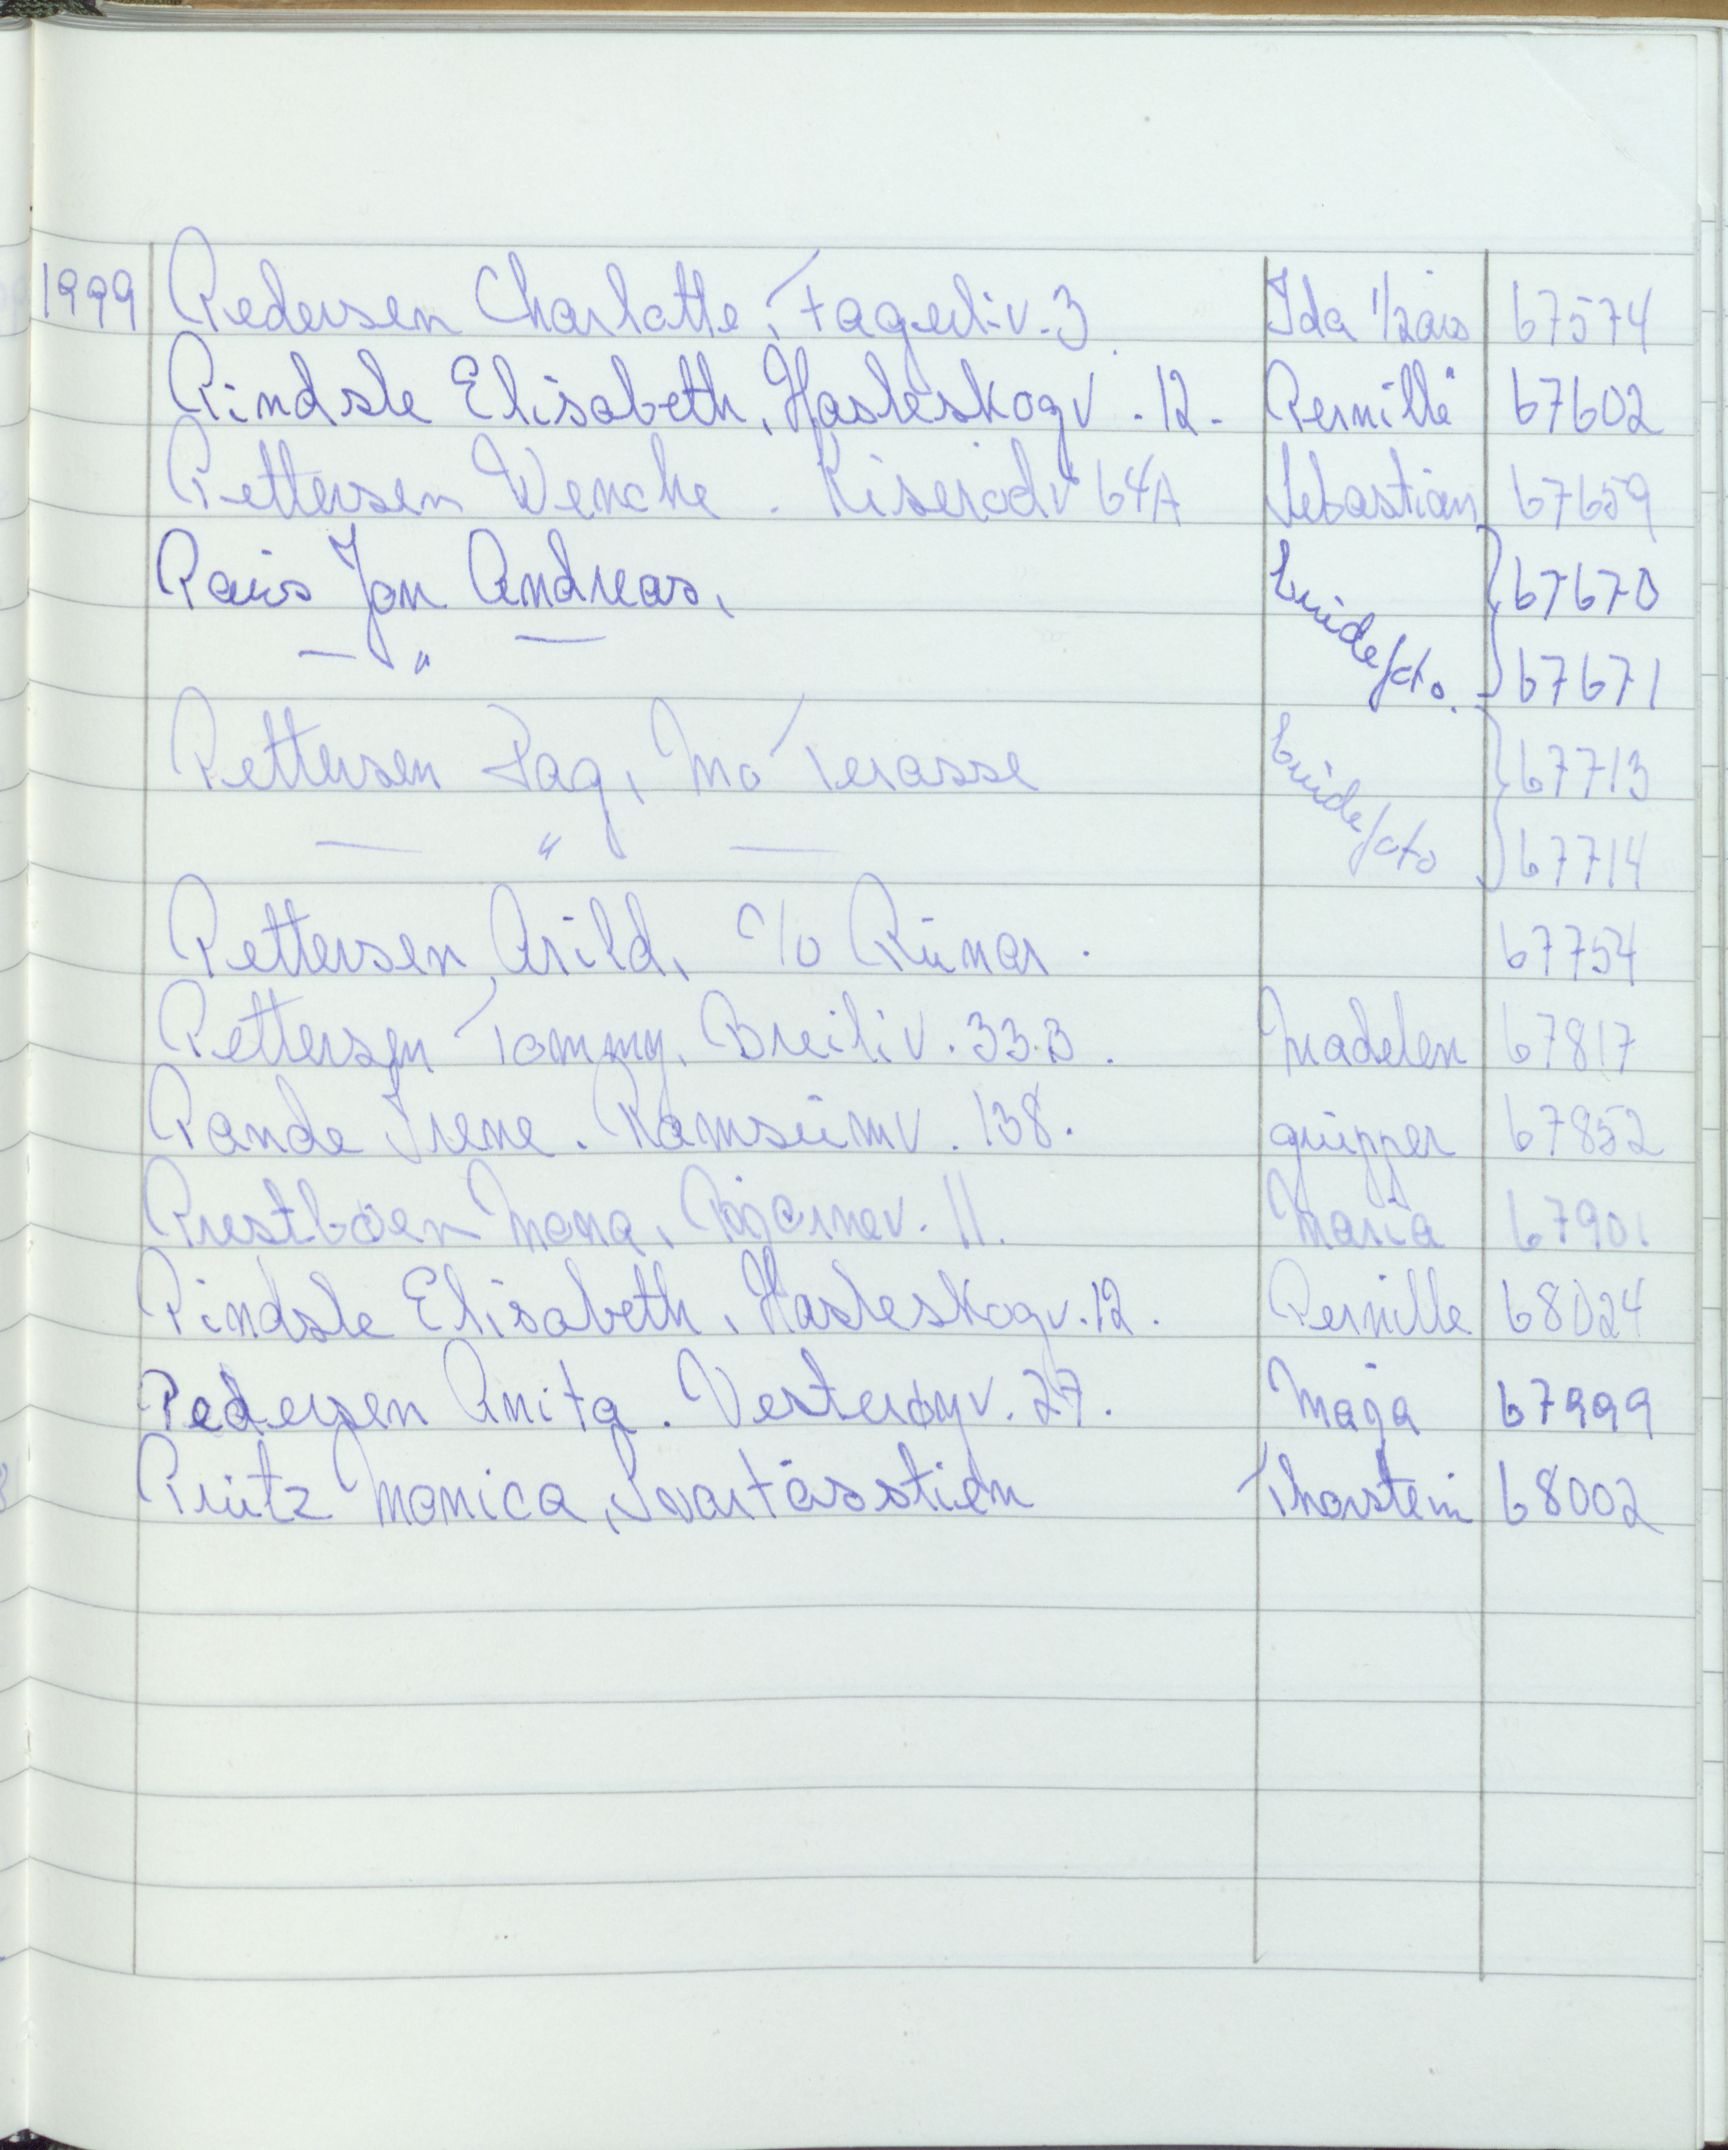 1999 Pedersen Charlotte, Fagerliv. 3 Ida 1/2 års 67574
Pindsle Elisabeth, Hasleskogv. 12. Pernille 67602
Pettersen Wenche. Kiserødv 64A Sebastian 67659
Jon Andreas, brudefoto. 67670
— " — 67671
Pettersen Dag, Mo Terasse brudefoto 67713
— " — 67714
Pettersen Arild, c/o Runar. 67754
Pettersen Tommy. Breiliv. 33.B. Madelen 67817
Pande Irene. Ramsumv. 138. grupper 67852
Prestbøen Mona, Bjørnev. 11. Maria 67901
Pindsle Elisabeth, Hasleskogv. 12. Pernille 68024
Pedersen Anita. Vesterøyv. 27. Maja 67999
Prütz Monica, Svartåsstien Thorstein 68002